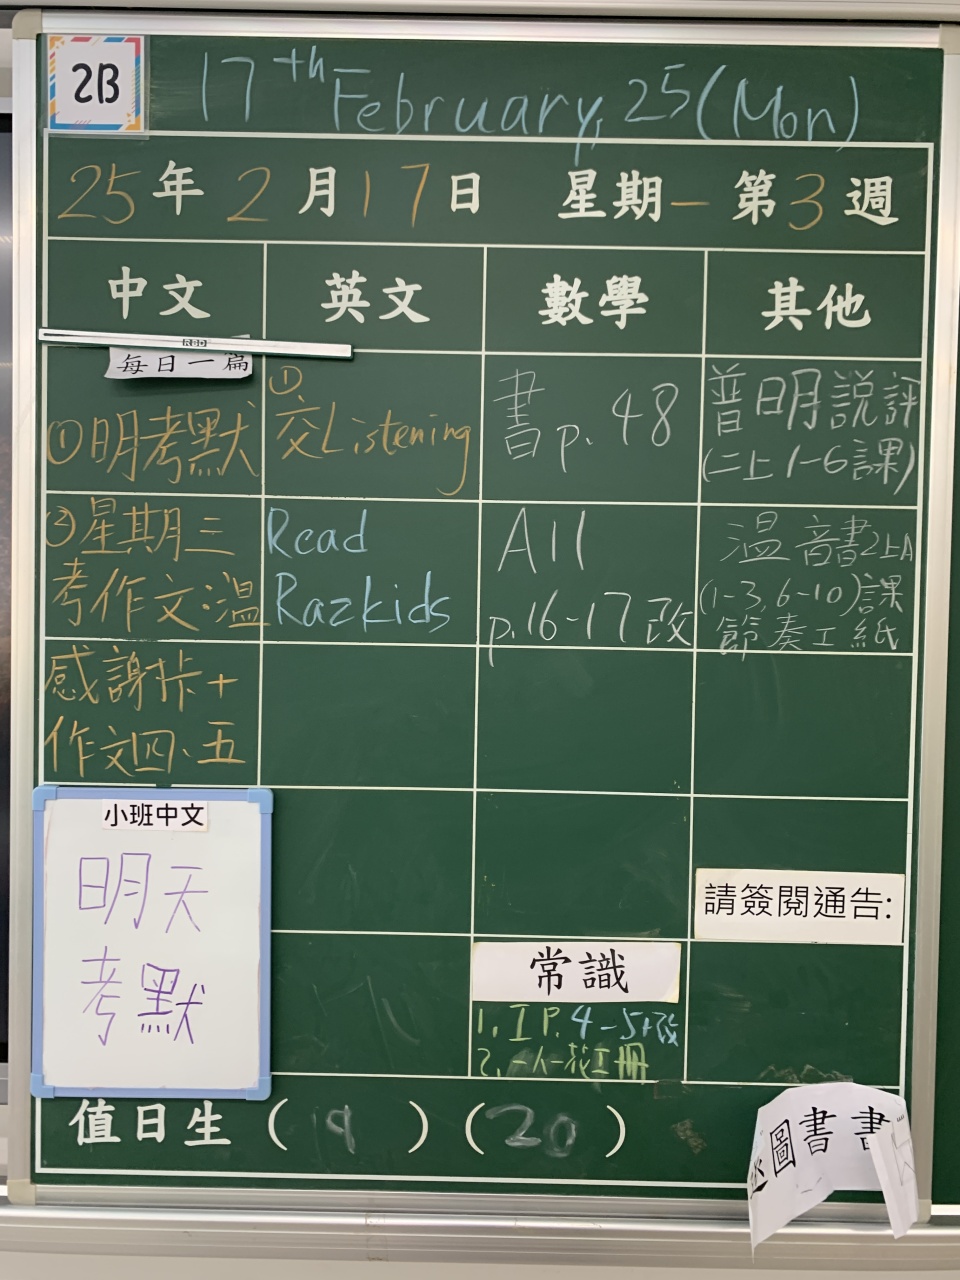 2B
17th February, 25 (Mon)
25年2月17日 星期一 第3週
中文 英文 數學 其他
每日一篇
①明考默
②星期三
考作文:溫
感謝咭+
作文四、五
①
交Listening
Read
Razkids
書p.48
All
p.16-17改
普明説評
(二上1-6課)
溫音書2上A
(1-3,6-10)課
節奏工紙
小班中文
明天
考默
請簽閱通告:
常識
1. I P.4-5+改
2. 一人一花工冊
值日生 (19) (20)
圖書書